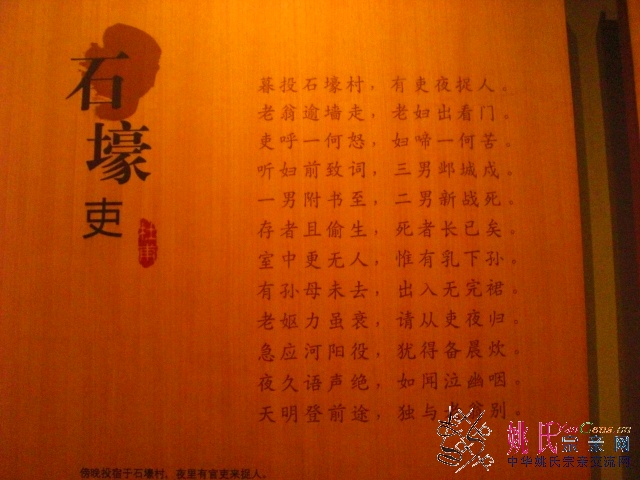 石壕吏
杜甫
暮投石壕村，有吏夜捉人。
老翁逾墙走，老妇出看门。
吏呼一何怒，妇啼一何苦。
听妇前致词，三男邺城戍。
一男附书至，二男新战死。
存者且偷生，死者长已矣。
室中更无人，惟有乳下孙。
有孙母未去，出入无完裙。
老妪力虽衰，请从吏夜归。
急应河阳役，犹得备晨炊。
夜久语声绝，如闻泣幽咽。
天明登前途，独与老翁别。
傍晚投宿于石壕村，夜里有官吏来捉人。
姚氏宗亲网
中华姚氏宗亲交流网